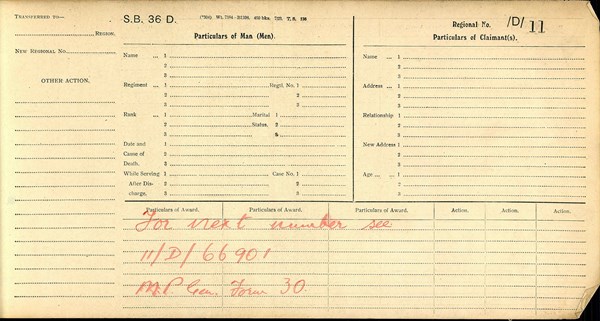 TRANSFERRED TO—
REGION.
NEW REGIONAL NO.
OTHER ACTION.
S.B. 36 D.
Particulars of Man (Men).
Name ... 1
2
3
Regiment ... 1 Regtl. No. 1
2 2
3 3
Rank ... 1 Marital 1
2 Status. 2
3 3
Date and 1
Cause of 2
Death. 3
While Serving 1 Case No. 1
After Dis- 2 2
charge. 3 3
Regional No. /D/ 11
Particulars of Claimant(s).
Name ... 1
2
3
Address ... 1
2
3
Relationship 1
2
3
New Address 1
2
3
Age ... ... 1
2
3
Particulars of Award. Particulars of Award. Particulars of Award. Action. Action. Action.
For next number see
11/D/66901
M.P. Form 30.